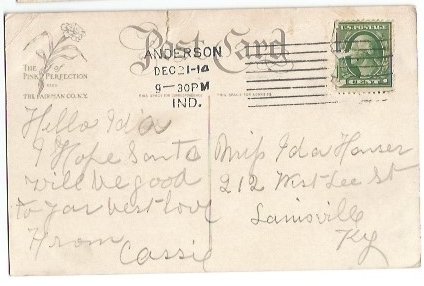 THE of
PINK PERFECTION
THE FAIRMAN CO. N.Y.
Post Card
ANDERSON
DEC 21-14
9-30PM
IND.
U.S. POSTAGE
THIS SPACE FOR CORRESPONDENCE
THIS SPACE FOR ADDRESS
Hello Ida
I Hope Santa
will be good
to you best love
From
Cassie
Miss Ida Hauser
212 West Lee St
Louisville
Ky